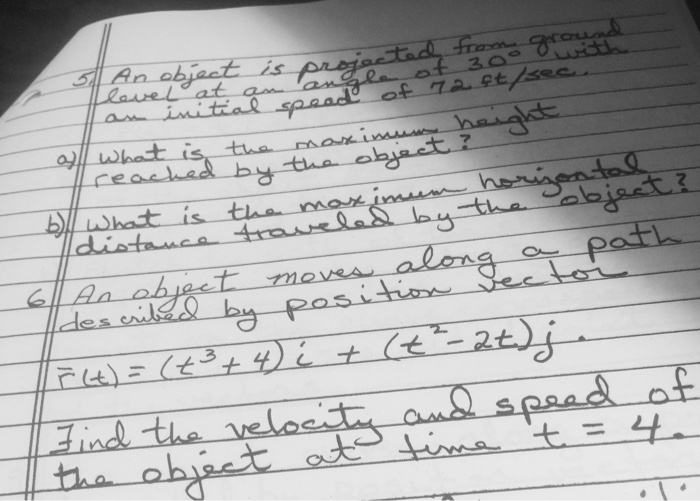 5) An object is projected from ground
level at an angle of 30° with
an initial speed of 72 ft/sec.
a) What is the maximum height
reached by the object?
b) What is the maximum horizontal
distance traveled by the object?
6) An object moves along a path
described by position vector
r̄(t) = (t³ + 4) i + (t² - 2t) j.
Find the velocity and speed of
the object at time t = 4.